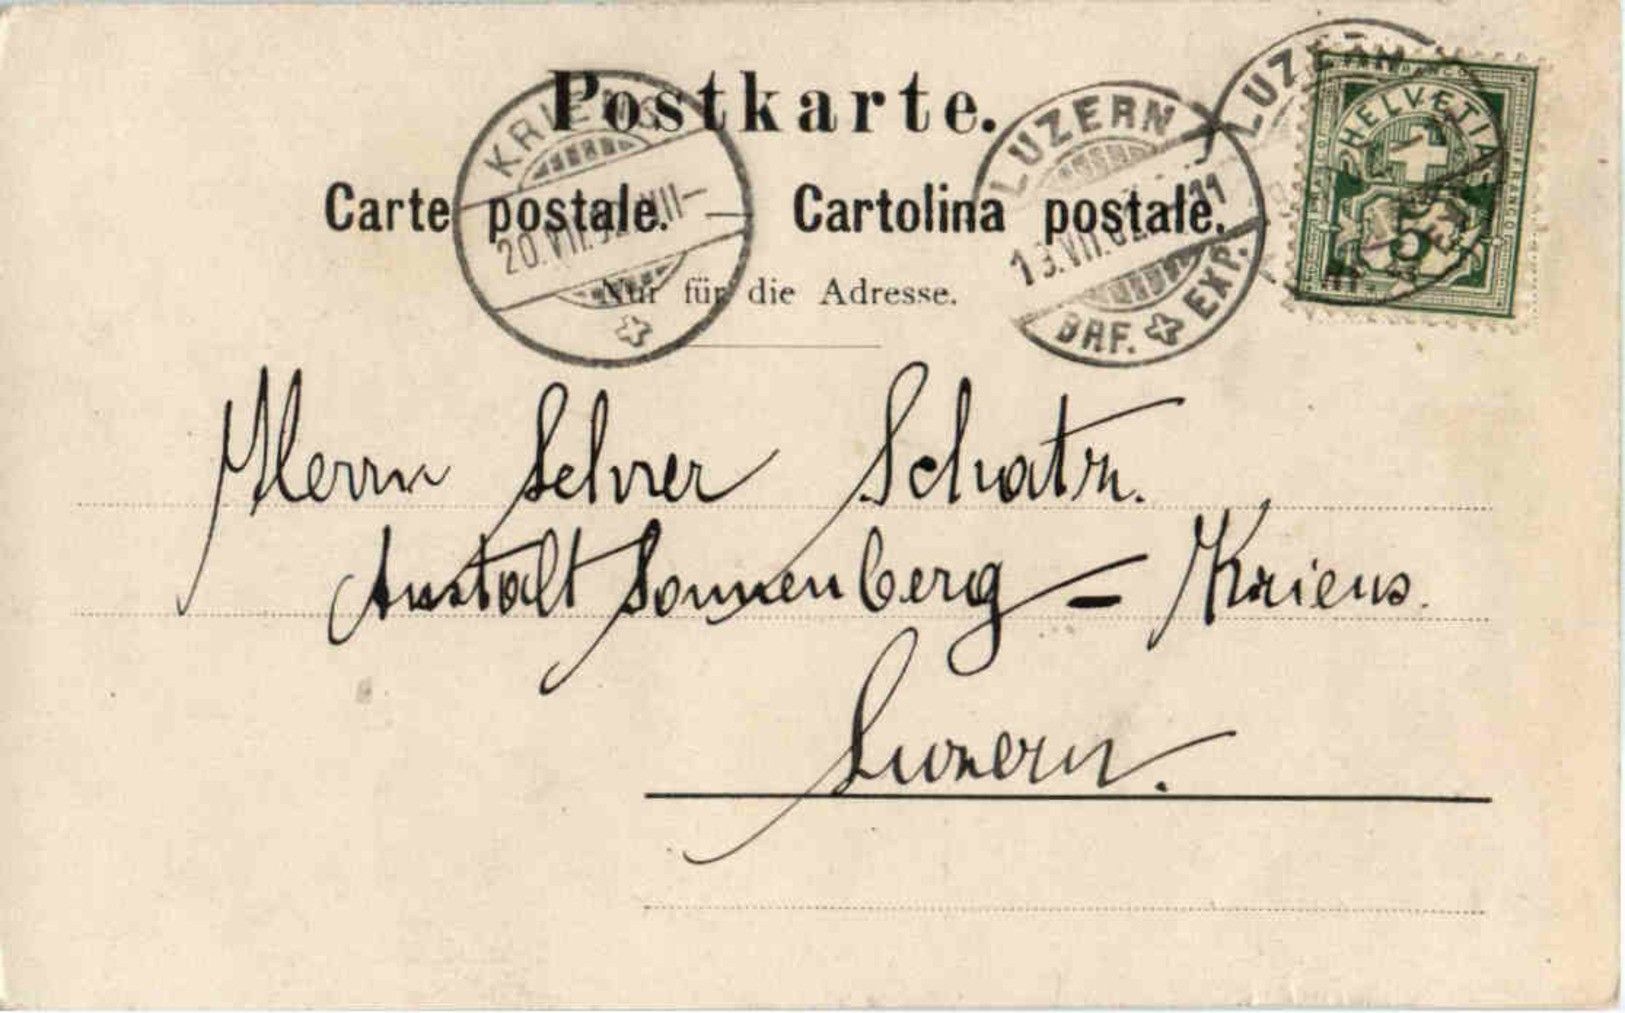 Postkarte.
Carte postale. Cartolina postale.
Nur für die Adresse.
KRIENS
20.VII.
LUZERN
VII.02. 11
BRF. EXP.
LUZERN
HELVETIA
FRANCO
5
Herrn Lehrer
Anstalt Sonnenberg = Kriens.
Luzern.